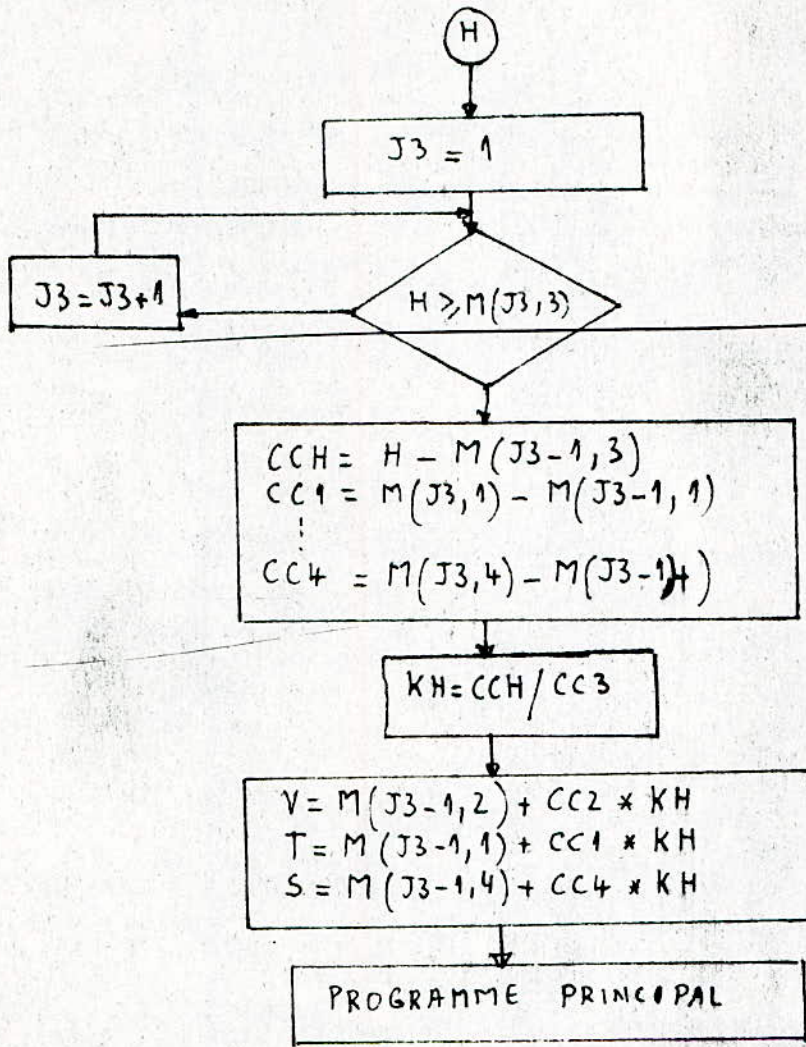 H
J3 = 1
J3=J3+1
H ⩾ M(J3,3)
CCH = H - M(J3-1,3)
CC1 = M(J3,1) - M(J3-1,1)
⋮
CC4 = M(J3,4) - M(J3-1,4)
KH=CCH/CC3
V= M(J3-1,2)+ CC2 * KH
T= M(J3-1,1)+ CC1 * KH
S= M(J3-1,4)+ CC4 * KH
PROGRAMME PRINCIPAL